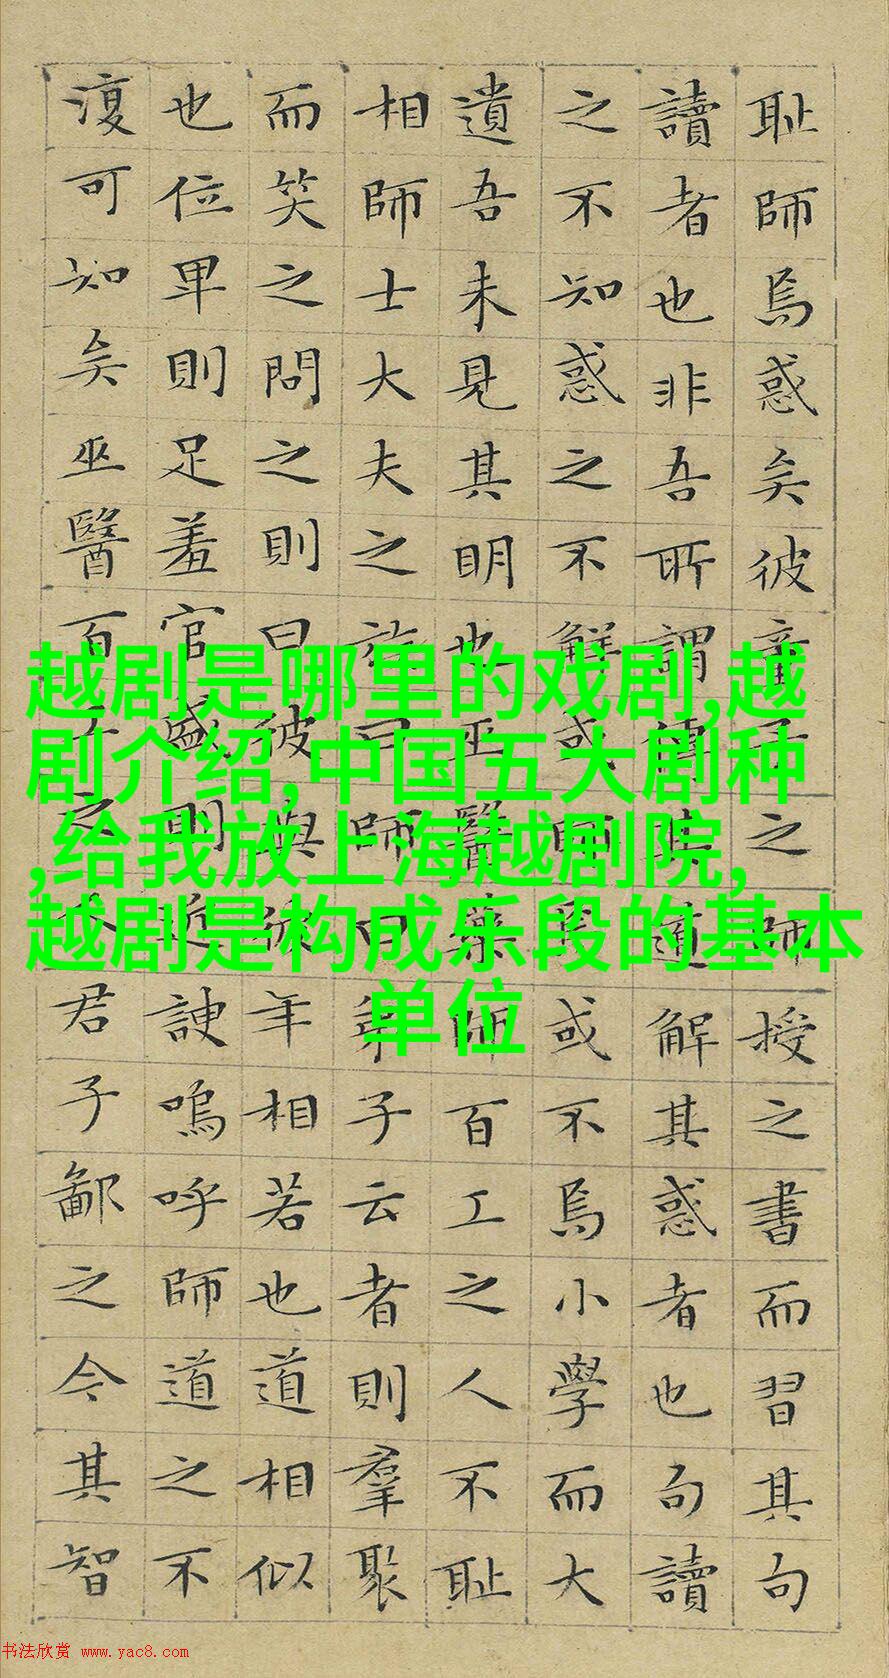 耻師焉惑矣彼童子之師授之書而習其句
讀者也非吾所謂傳其道解其惑者也句讀
之不知惑之不解或師焉或不焉小學而大
遺吾未見其明也巫醫藥師百工之人不耻
相師士大夫之族曰師曰弟子云者則羣聚
而笑之問之則曰彼與彼年相若也道相似
也位卑則足羞官盛則近諛嗚呼師道之不
復可知矣巫醫百之君子鄙之今其智
越剧是哪里的戏剧,越
剧介绍,中国五大剧种
,给我放上海越剧院,
越剧是构成乐段的基本
单位
书法欣赏 www.yac8.com